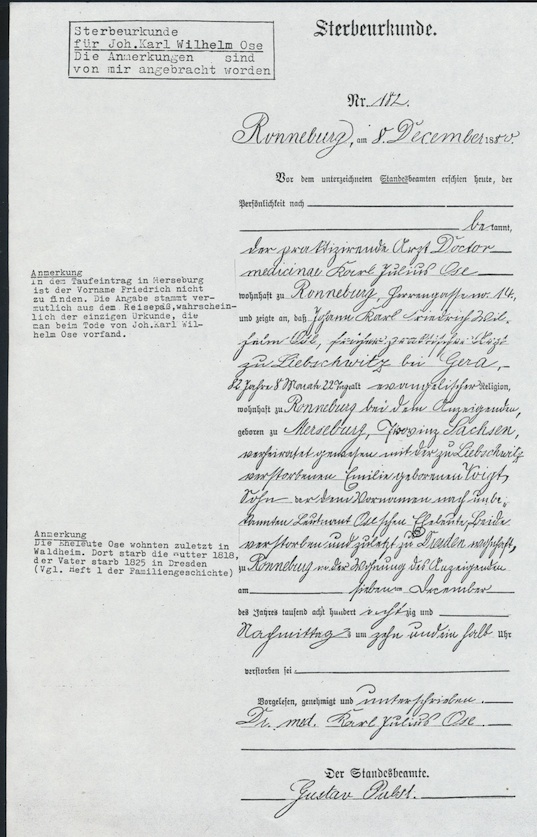 Sterbeurkunde
für Joh.Karl Wilhelm Ose
Die Anmerkungen sind
von mir angebracht worden
Sterbeurkunde.
Nr. 182.
Ronneburg, am 8. December 1880.
Vor dem unterzeichneten Standesbeamten erschien heute, der
Persönlichkeit nach
bekannt,
der praktizirende Arzt Doctor
medicinae Karl Julius Ose
wohnhaft zu Ronneburg, Herrengasse no. 14,
und zeigte an, daß Johann Karl Friedrich Wil-
helm Ose, früher praktischer Arzt
zu Liebschwitz bei Gera,
82 Jahre 8 Monate 22 Tage alt evangelischer Religion,
wohnhaft zu Ronneburg bei dem Anzeigenden,
geboren zu Merseburg, Provinz Sachsen,
verheiratet gewesen mit der zu Liebschwitz
verstorbenen Emilie geborenen Voigt
Sohn der dem Vornamen nach unbe-
kannten Leutnant Ose'schen Eheleute, beide
verstorben und zuletzt zu Dresden wohnhaft,
zu Ronneburg in der Wohnung des Anzeigenden
am sieben December
des Jahres tausend acht hundert achtzig und
Nachmittags um zehn und ein halb Uhr
verstorben sei.
Vorgelesen, genehmigt und unterschrieben.
Dr. med. Karl Julius Ose.
Der Standesbeamte.
Gustav Pabst.
Anmerkung
In dem Taufeintrag in Merseburg
ist der Vorname Friedrich nicht
zu finden. Die Angabe stammt ver-
mutlich aus dem Reisepaß, wahrschein-
lich der einzigen Urkunde, die
man beim Tode von Joh.Karl Wil-
helm Ose vorfand.
Anmerkung
Die Eheleute Ose wohnten zuletzt in
Waldheim. Dort starb die Mutter 1818,
der Vater starb 1825 in Dresden
(Vgl. Heft 1 der Familiengeschichte)